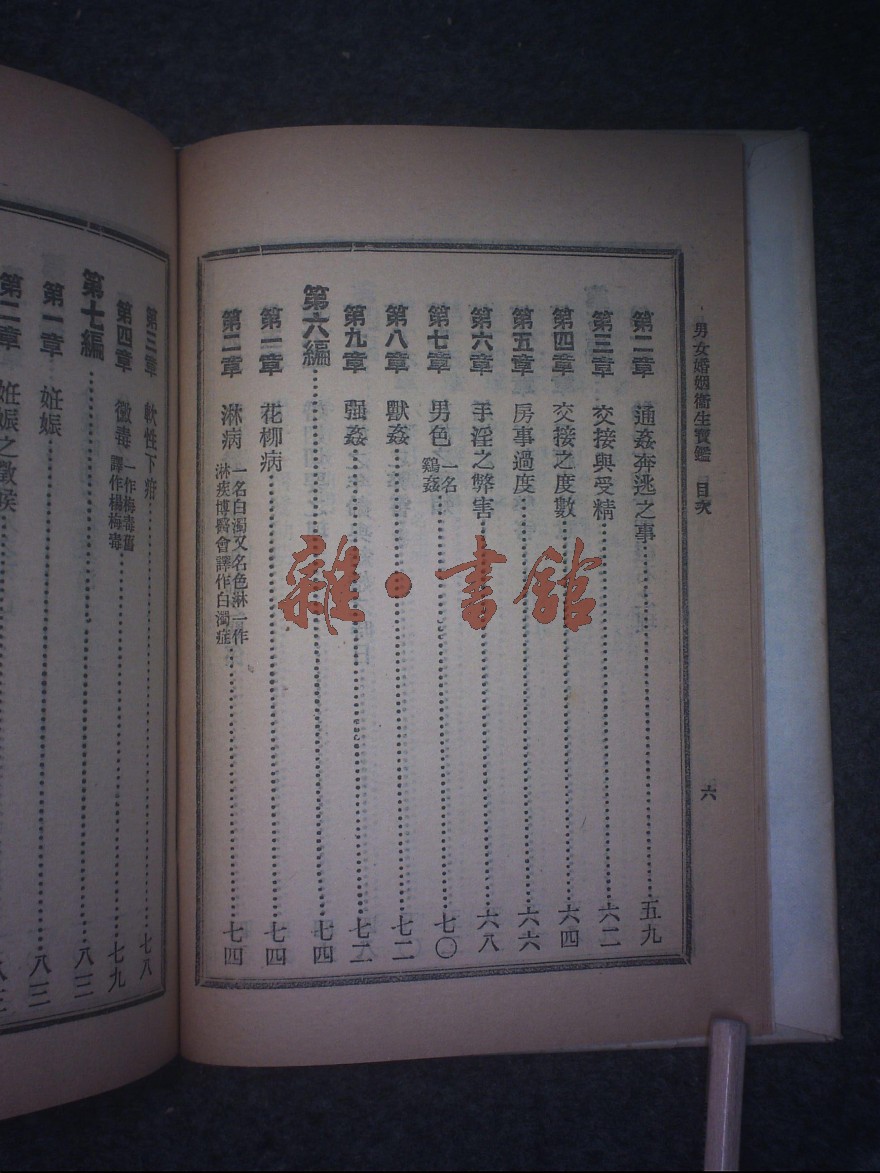 男女婚姻衞生寶鑑 目次 六
第二章 通姦奔逃之事 五九
第三章 交接與受精 六二
第四章 交接之度數 六四
第五章 房事過度 六六
第六章 手淫之弊害 六八
第七章 男色 一名鷄姦 七〇
第八章 獸姦 七二
第九章 强姦 七二
第六編 七四
第一章 花柳病 七四
第二章 淋病 一名白濁又名色淋一作淋疾博醫會譯作白濁症 七四
第三章 軟性下疳 七八
第四章 黴毒 一作梅毒舊譯作楊梅毒 七九
第七編 八三
第一章 妊娠 八三
第二章 妊娠之徵候 八三
雜·書館